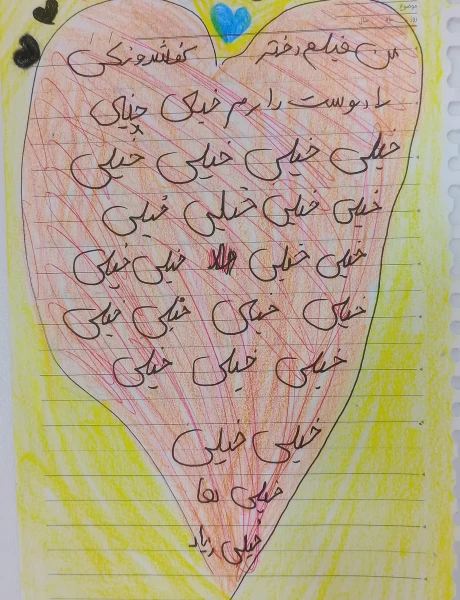 موضوع
من فیلم دختر کفشدوزکی
را دوست دارم خیلی خیلی
خیلی خیلی خیلی خیلی
خیلی خیلی خیلی خیلی
خیلی خیلی خیلی خیلی
خیلی خیلی خیلی خیلی
خیلی خیلی خیلی
خیلی خیلی
خیلی
خیلی زیاد